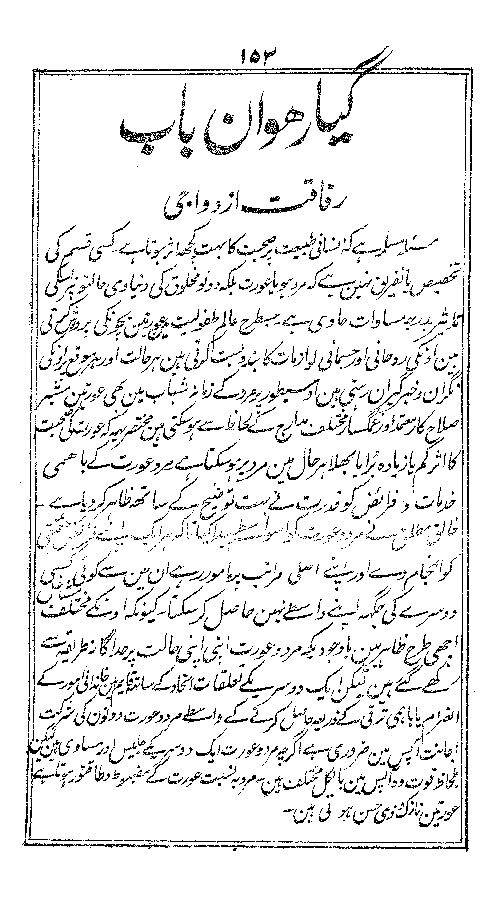 ۱۵۳
گیارھوان باب
رفاقت ازدواجی
مسئلہ مسلمہ ہے کہ انسانی طبیعت پر صحبت کا بہت کچھ اثر ہوتا ہے۔ کسی قسم کی
تخصیص یا تفریق نہین ہے کہ مرد ہو یا عورت بلکہ دونو مخلوق کی دنیاوی حالتو پر اسکی
تاثیر بدرجہ مساوات حاوی ہے۔ جسطرح عالم طفولیت مین عورتین بچونکی پرورش کرتی
ہین اونکی روحانی اور جسمانی لوازمات کا بندوبست کرتی ہین ہر حالت اور ہر موقع پر اونکی
نگران و خبرگیران رہتی ہین اوسیطور پر مرد کے زمانہ شباب مین بھی عورتین مشیر
صلاح کار معتمد اور غمگسار مختلف مدارج کے لحاظ سے ہو سکتی ہین مختصر یہہ کہ عورت کی صحبت
کا اثر کم یا زیادہ برا یا بھلا ہر حال مین مرد پر ہو سکتا ہے مرد عورت کے باھمی
خدمات و فرائض کو قدرت نے بہت توضیح کے ساتھہ ظاہر کر دیا ہے۔
خالق مطلق نے مرد و عورت کو اسواسطے پیدا کیا تاکہ ہر ایک اپنے فرائض
کو انجام دے اور اپنے اصلی مراتب پر مامور رہے ان مین سے کوئی کسی
دوسرے کی جگہہ اپنے واسطے نہین حاصل کر سکتا۔ کیونکہ اونکے مختلف
اچھی طرح ظاہر ہین باوجودیکہ مرد و عورت اپنی اپنی حالت پر جداگانہ طریقہ سے
رکھے گئے ہین لیکن ایک دوسرے کے تعلقات اتحاد کے ساتھہ قایم ہین خاندانی امور کے
انصرام یا باہمی ترقی کے ذریعہ حاصل کرنے کے واسطے مرد و عورت دونون کی شرکت
اعانت آپس مین ضروری ہے اگرچہ مرد و عورت ایک دوسرے کے جلیس اور مساوی ہین لیکن
بلحاظ قوت وہ آپس مین بالکل مختلف ہین۔ مرد بہ نسبت عورت کے مضبوط و طاقتور ہوتا ہے
عورتین نازک ذی حس ہوتی ہین۔